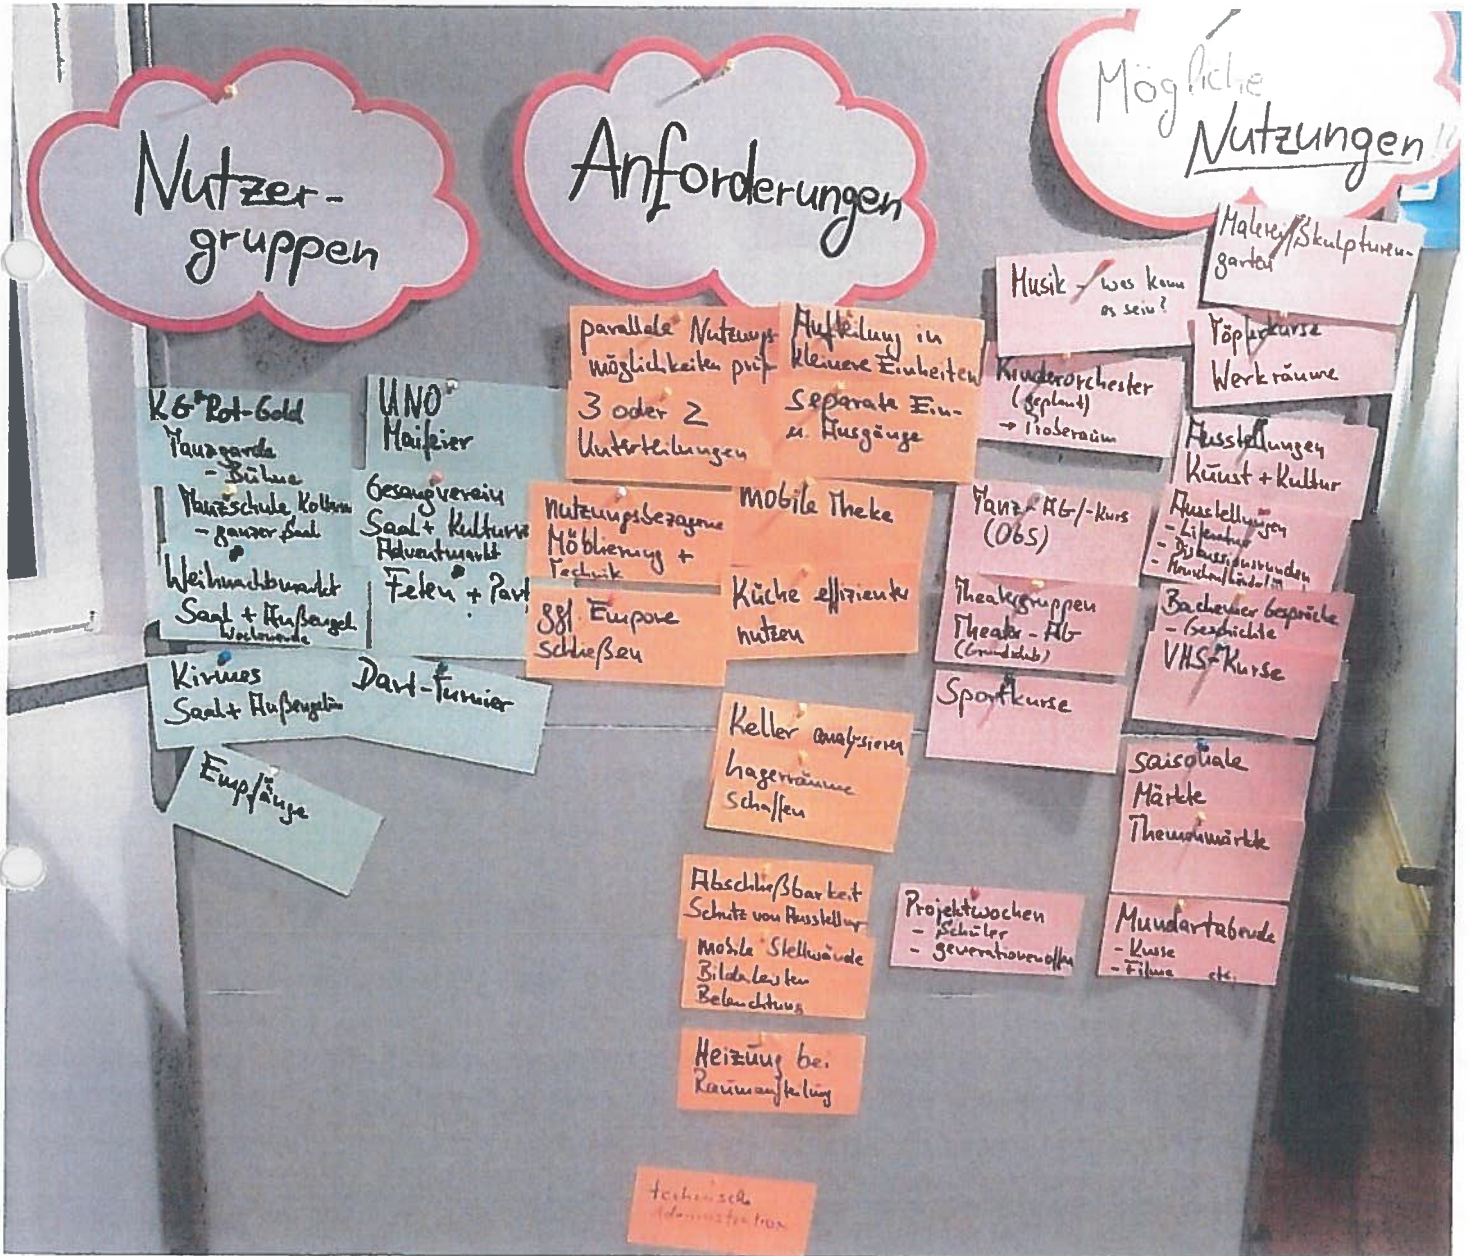 Nutzer-
gruppen
KG Rot-Gold
Tanzgarde
- Bühne
Tanzschule
- ganzer Saal
Weihnachtsmarkt
Saal + Außengel
Wochenende
Kirmes
Saal + Außengelän
Empfänge
UNO
Maifeier
Gesangverein
Saal + Kultur
Adventmarkt
Feten + Part
Dart-Turnier
Anforderungen
parallele Nutzungs-
möglichkeiten prüf
3 oder 2
Unterteilungen
nutzungsbezogene
Möblierung +
Technik
ggf. Empore
schließen
Aufteilung in
kleinere Einheiten
separate Ein-
u. Ausgänge
mobile Theke
Küche effizienter
nutzen
Keller analysieren
Lagerräume
schaffen
Abschließbarkeit
Schutz von Ausstellur
mobile Stellwände
Bilderleisten
Beleuchtung
Heizung bei
Raumaufteilung
technische
Administration
Mögliche
Nutzungen
Musik - was kann
es sein?
Kinderorchester
(geplant)
→ Proberaum
Tanz-AG/-Kurs
(OGS)
Theatergruppen
Theater-AG
(Grundschule)
Sportkurse
Projektwochen
- Schüler
- generationenoffen
Malerei/Skulpturen-
garten
Töpferkurse
Werkräume
Ausstellungen
Kunst + Kultur
Ausstellungen
- Literatur
- Diskussionsrunden
Bachemer Gespräche
- Geschichte
VHS-Kurse
saisonale
Märkte
Themenmärkte
Mundartabende
- Kurse
- Filme etc.